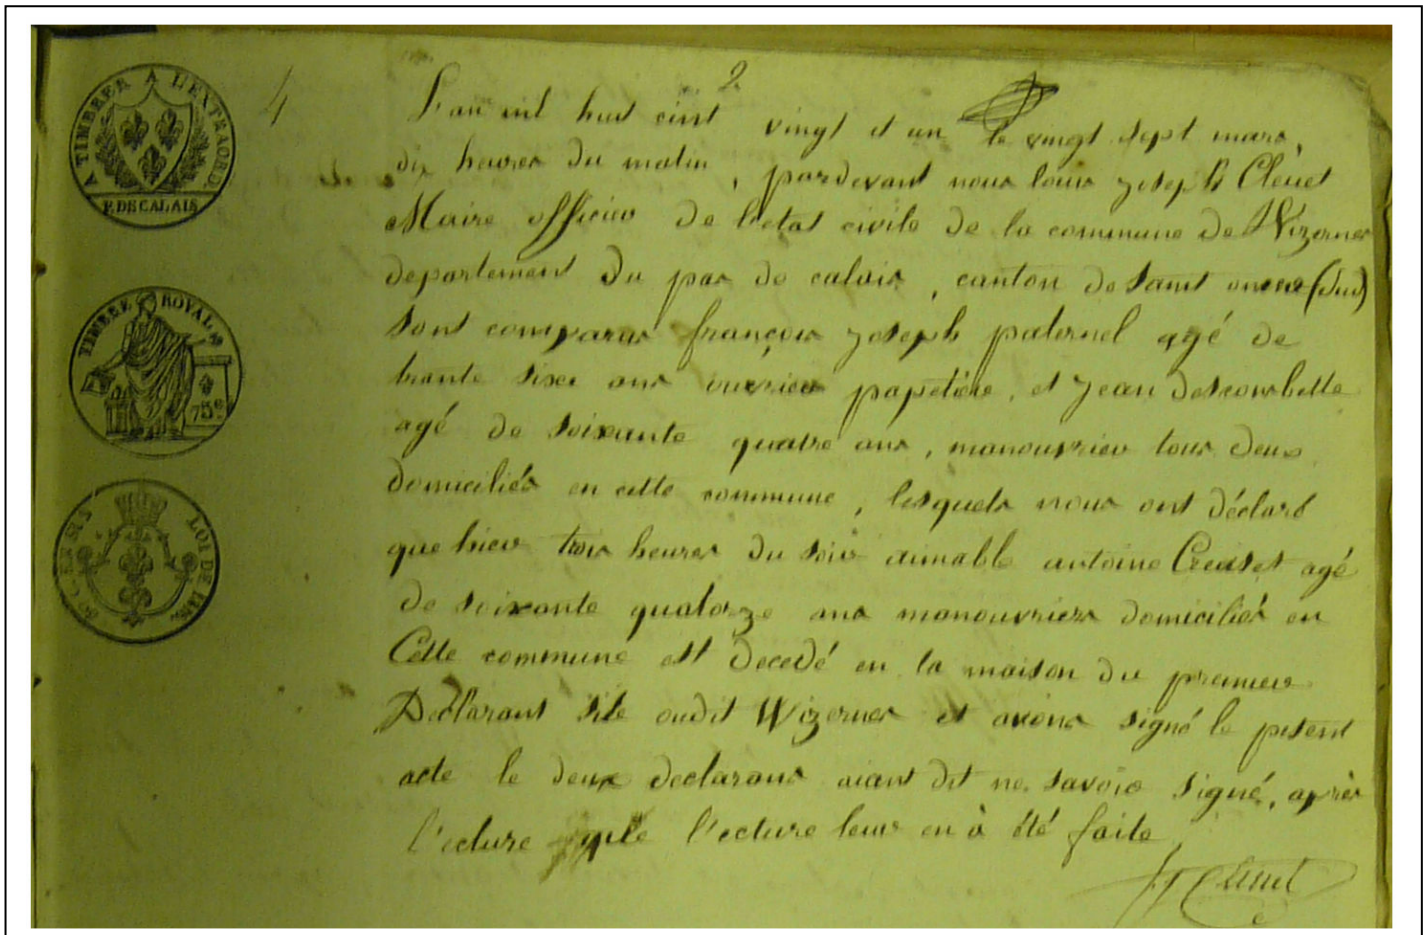 A TIMBRER A L'EXTRAORD.
P. DE CALAIS
TIMBRE ROYAL
75 c
LOI DE
4
2
L'an mil huit cint vingt et un le vingt sept mars,
dix heures du matin, pardevant nous louis joseph Clenet
Maire officier de l'etat civile de la commune de Wizernes
departement du pas de calais, canton de Saint omer (Sud)
Sont comparus françois joseph paternel agé de
trante sixe ans ouvrier papetière, et jean descombelle
agé de soixante quatre ans, manouvrier tous deux
domiciliés en cette commune, lesquels nous ont déclaré
que hier trois heures du soir aimable antoine Creuset agé
de soixante quatorze ans manouvriers domiciliés en
Cette commune est decedé en la maison du premier
Déclarant sile oudit Wizernes et avons signé le pésent
acte le deux declarans aiant dit ne savoir signé, après
l'ecture que l'ecture leur en à été faite